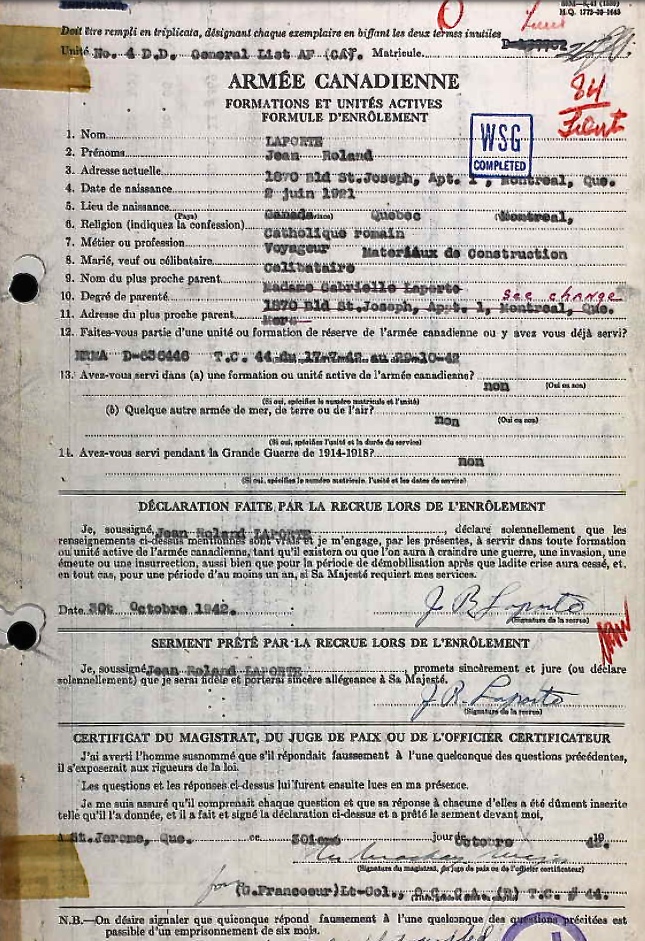 M.Q. 1772-39-1645
Doit être rempli en triplicata, désignant chaque exemplaire en biffant les deux termes inutiles
Unité No. 4 D.D. General List AF (CA). Matricule
ARMÉE CANADIENNE
FORMATIONS ET UNITÉS ACTIVES
FORMULE D'ENRÔLEMENT
84
WSG
COMPLETED
1. Nom LAPORTE
2. Prénoms Jean Roland
3. Adresse actuelle 1870 Bld St.Joseph, Apt. 1, Montreal, Que.
4. Date de naissance 2 juin 1921
5. Lieu de naissance Canada Quebec Montreal,
(Pays)
6. Religion (indiquez la confession) Catholique romain
7. Métier ou profession Voyageur Materiaux de Construction
8. Marié, veuf ou célibataire Celibataire
9. Nom du plus proche parent Madame Gabrielle Laporte
10. Degré de parenté see change
11. Adresse du plus proche parent 1870 Bld St.Joseph, Appt. 1, Montreal, Que.
Mere
12. Faites-vous partie d'une unité ou formation de réserve de l'armée canadienne ou y avez vous déjà servi?
NRMA D-636446 T.C. 44 du 17-7-42 au 29-10-42
13. Avez-vous servi dans (a) une formation ou unité active de l'armée canadienne? non (Oui ou non)
(Si oui, spécifiez le numéro matricule et l'unité)
(b) Quelque autre armée de mer, de terre ou de l'air? non (Oui ou non)
(Si oui, spécifiez l'unité et la durée du service)
14. Avez-vous servi pendant la Grande Guerre de 1914-1918? non
(Si oui, spécifiez le numéro matricule, l'unité et les dates de service)
DÉCLARATION FAITE PAR LA RECRUE LORS DE L'ENRÔLEMENT
Je, soussigné, Jean Roland LAPORTE, déclare solennellement que les
renseignements ci-dessus mentionnés sont vrais et je m'engage, par les présentes, à servir dans toute formation
ou unité active de l'armée canadienne, tant qu'il existera ou que l'on aura à craindre une guerre, une invasion, une
émeute ou une insurrection, aussi bien que pour la période de démobilisation après que ladite crise aura cessé, et,
en tout cas, pour une période d'au moins un an, si Sa Majesté requiert mes services.
Date 30t Octobre 1942. J. R. Laporte
(Signature de la recrue)
SERMENT PRÊTÉ PAR LA RECRUE LORS DE L'ENRÔLEMENT
Je, soussigné Jean Roland LAPORTE, promets sincèrement et jure (ou déclare
solennellement) que je serai fidèle et porterai sincère allégeance à Sa Majesté.
J. R. Laporte
(Signature de la recrue)
CERTIFICAT DU MAGISTRAT, DU JUGE DE PAIX OU DE L'OFFICIER CERTIFICATEUR
J'ai averti l'homme susnommé que s'il répondait faussement à l'une quelconque des questions précédentes,
il s'exposerait aux rigueurs de la loi.
Les questions et les réponses ci-dessus lui furent ensuite lues en ma présence.
Je me suis assuré qu'il comprenait chaque question et que sa réponse à chacune d'elles a été dûment inscrite
telle qu'il l'a donnée, et il a fait et signé la déclaration ci-dessus et a prêté le serment devant moi,
A St.Jerome, Que. ce 30ieme jour de Octobre 19 42.
(Signature du magistrat, du juge de paix ou de l'officier certificateur)
for (G.Francoeur) Lt-Col., O.C. C.A. (B) T.C. # 44.
N.B.—On désire signaler que quiconque répond faussement à l'une quelconque des questions précitées est
passible d'un emprisonnement de six mois.